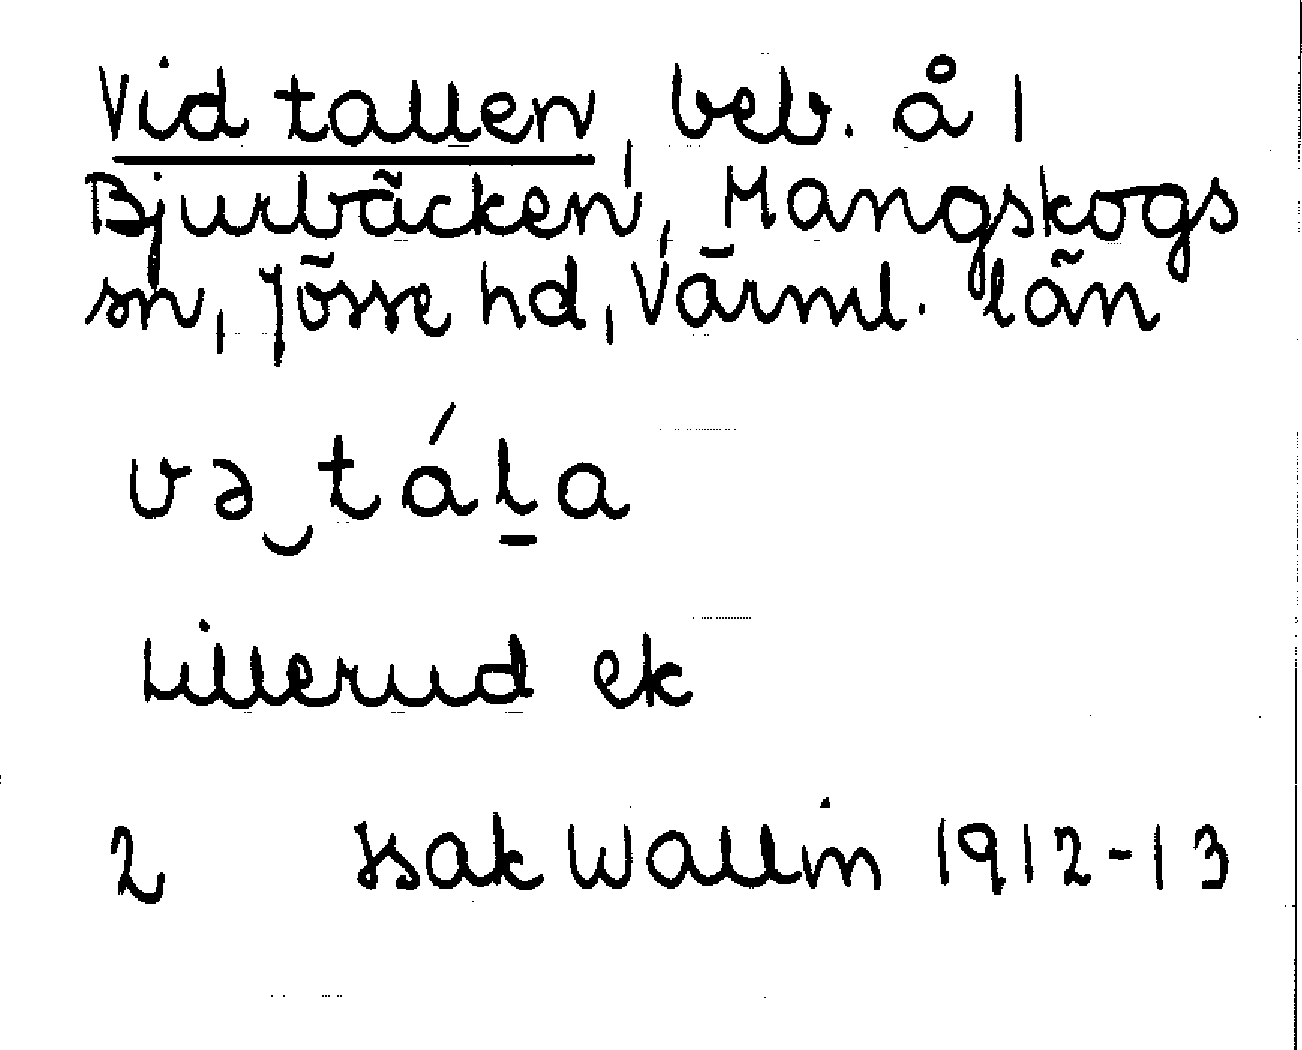 Vid tallen, beb. å 1
Bjurbäcken, Mangskogs
sn, Jösse hd, Värml. län
və‿tálḻa
Lillerud ek
2 Isak Wallin 1912-13